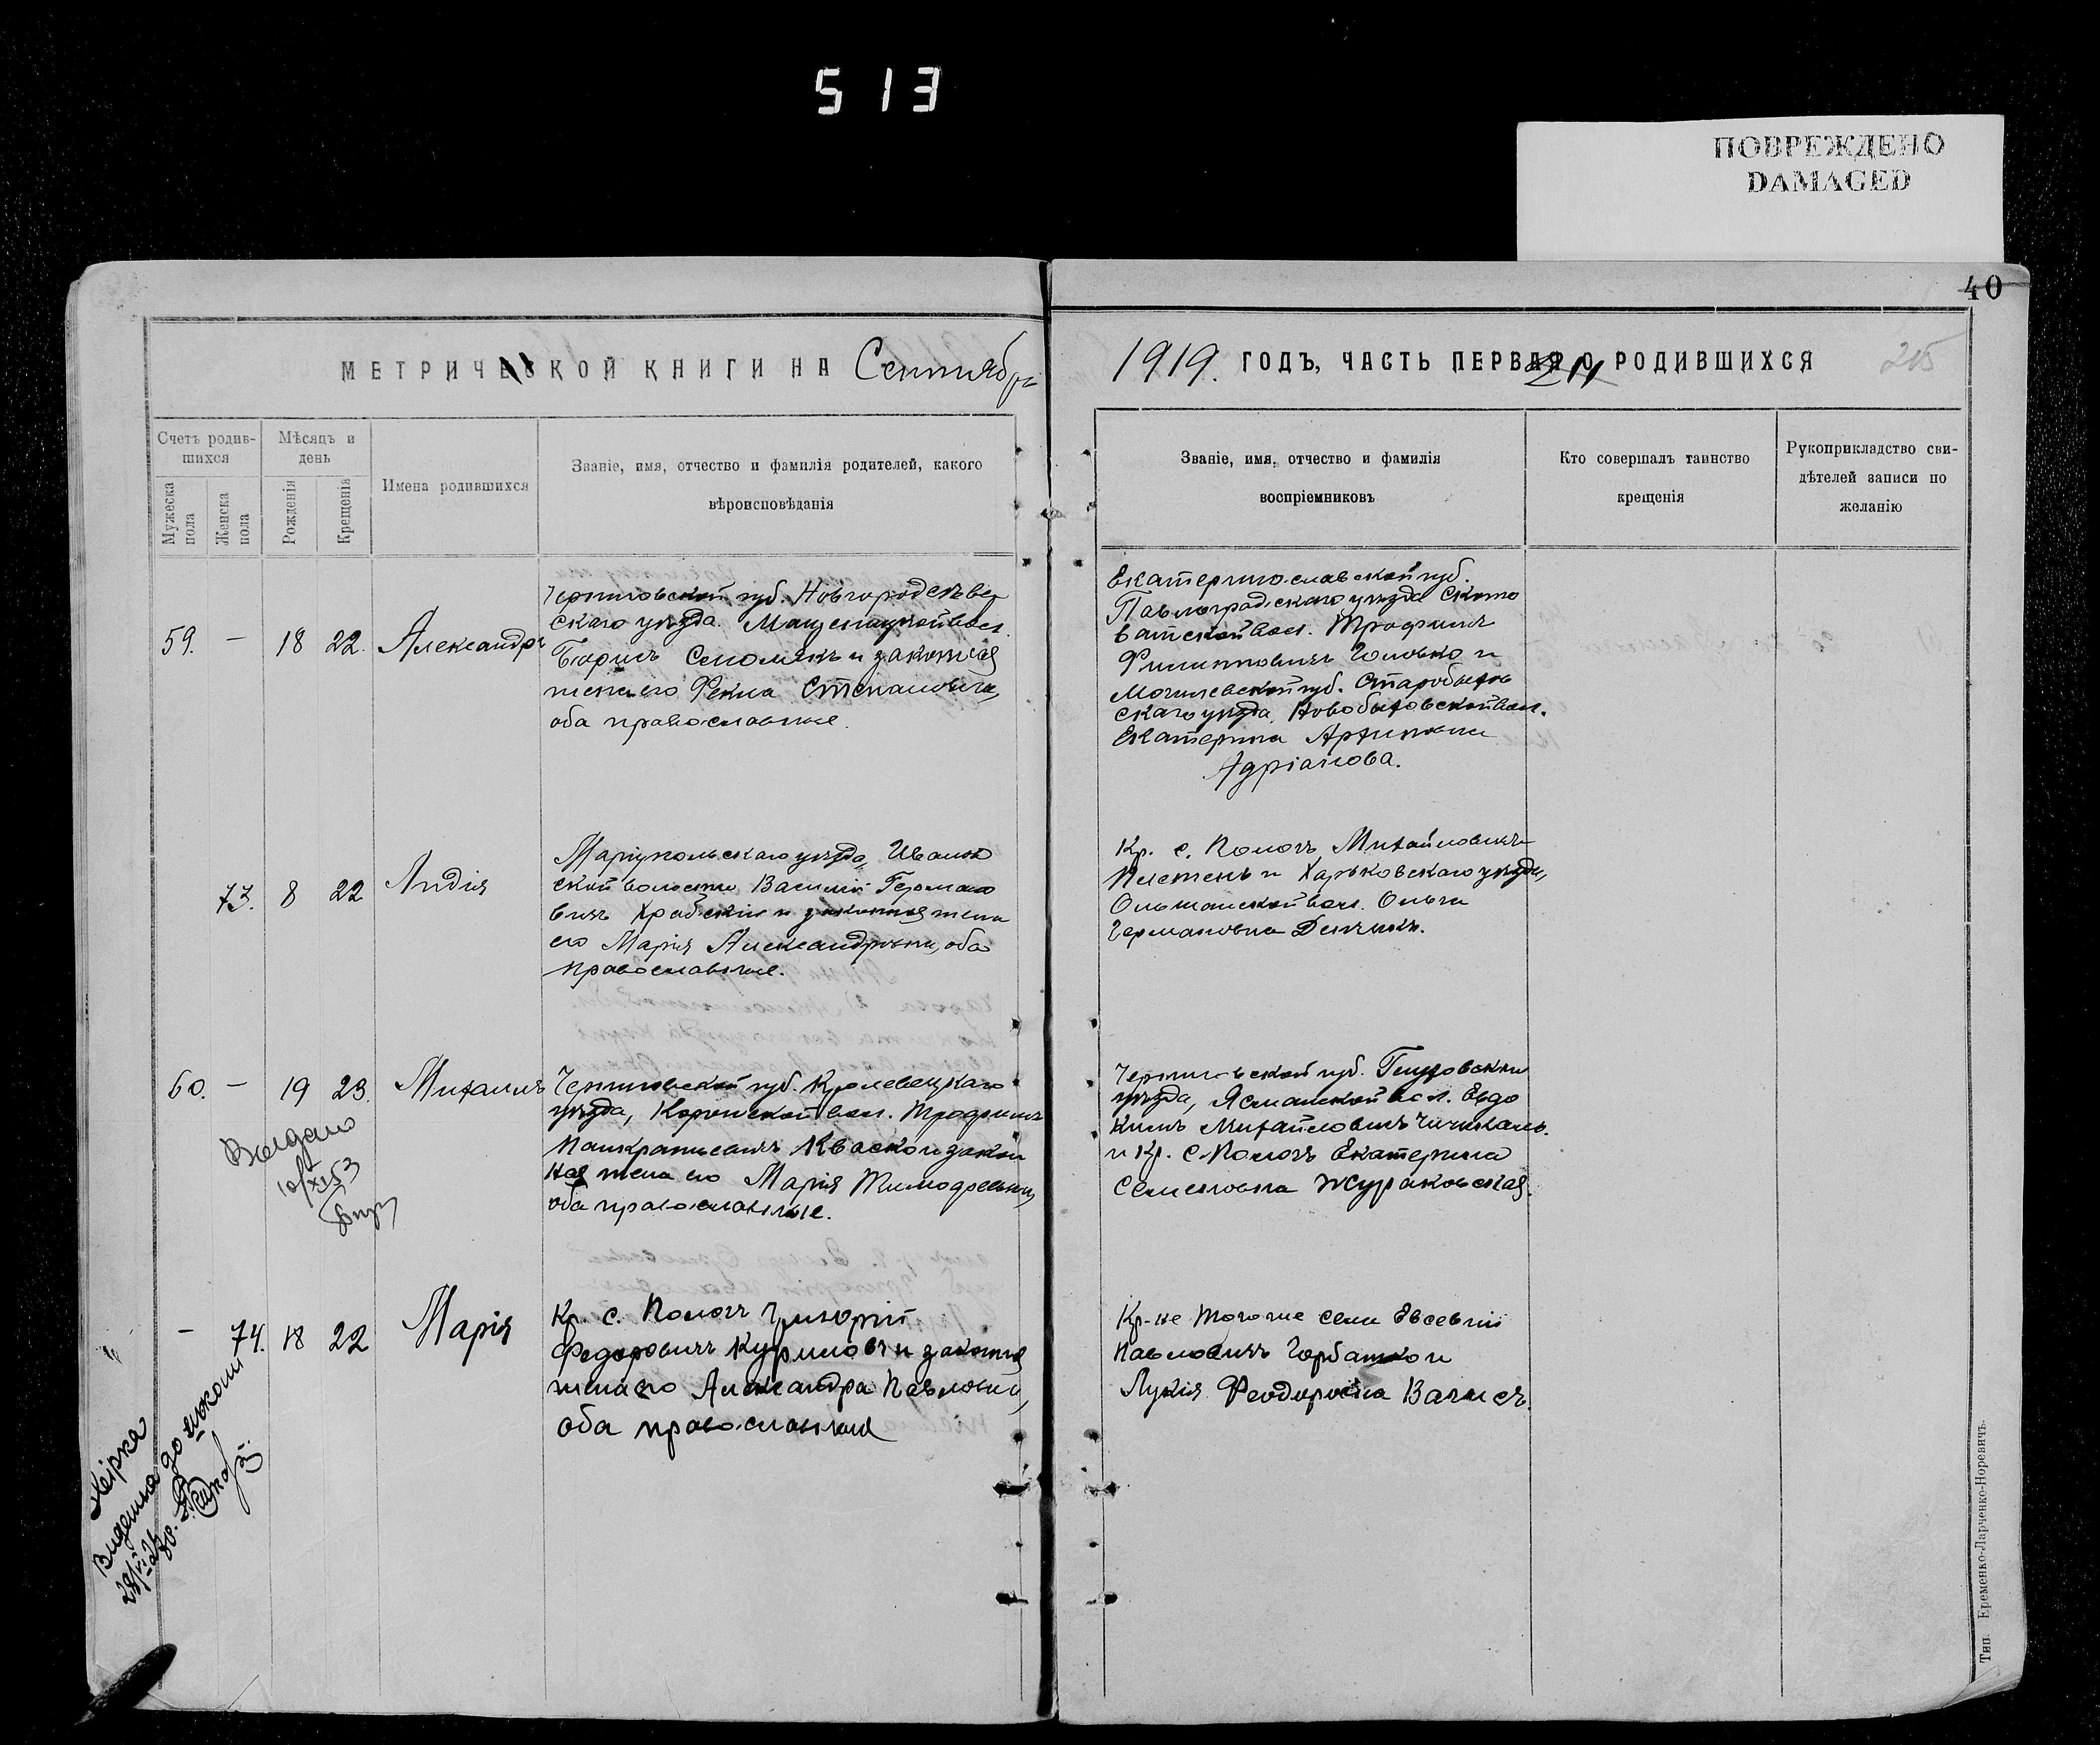 513
ПОВРЕЖДЕНО
DAMAGED
40
МЕТРИЧЕСКОЙ КНИГИ НА Сентябрь
1919. ГОДЪ, ЧАСТЬ ПЕРВАЯ О РОДИВШИХСЯ
211
215
Счетъ родив-
шихся
Мужеска пола
Женска пола
Мѣсяцъ и
день
Рожденія
Крещенія
Имена родившихся
Званіе, имя, отчество и фамилія родителей, какого
вѣроисповѣданія
Званіе, имя, отчество и фамилія
воспріемниковъ
Кто совершалъ таинство
крещенія
Рукоприкладство сви-
дѣтелей записи по
желанію
59. – 18 22. Александръ
Черниговской губ. Новгородсѣвер
скаго уѣзда
Борисъ и законная
жена его Фекла Степановна,
оба православные.
Екатеринославской губ.
Павлоградскаго уѣзда Ското
ватской вол. Трофимъ
Филипповичъ Головко и
Могилевской губ. Старобыхов
скаго уѣзда, Новобыховской вол.
Екатерина
Адріанова.
73. 8 22 Лидія
Маріупольскаго уѣзда, Иванов
ской волости Василій Германо
вичъ Храбскій и законная жена
его Марія Александровна, оба
православные.
Кр. с. Пологъ Михайловичъ
Плетень и Харьковскаго уѣзда,
Ольшанской вол. Ольга
Германовна
60. – 19 23. Михаилъ
Черниговской губ. Кролевецкаго
уѣзда, Коропской вол. Трофимъ
Панкратьевичъ Кваско и закон
ная жена его Марія Тимофеевна,
оба православные.
Черниговской губ. Глуховскаго
уѣзда, Ясманской вол. Евдо
кимъ Михайловичъ
и Кр. с. Пологъ Екатерина
Семеновна Жураковская.
Выдано
10/XI 53
– 74. 18 22 Марія
Кр. с. Пологъ Григорій
Федоровичъ Куриловъ и законная
жена его Александра Павловна,
оба православные
Кр-не того же села Евсевій
Павловичъ Горбатко и
Лукія Феодоровна
Метрика
Видетна до школи
Тип. Еременко-Ларченко-Норевичъ.